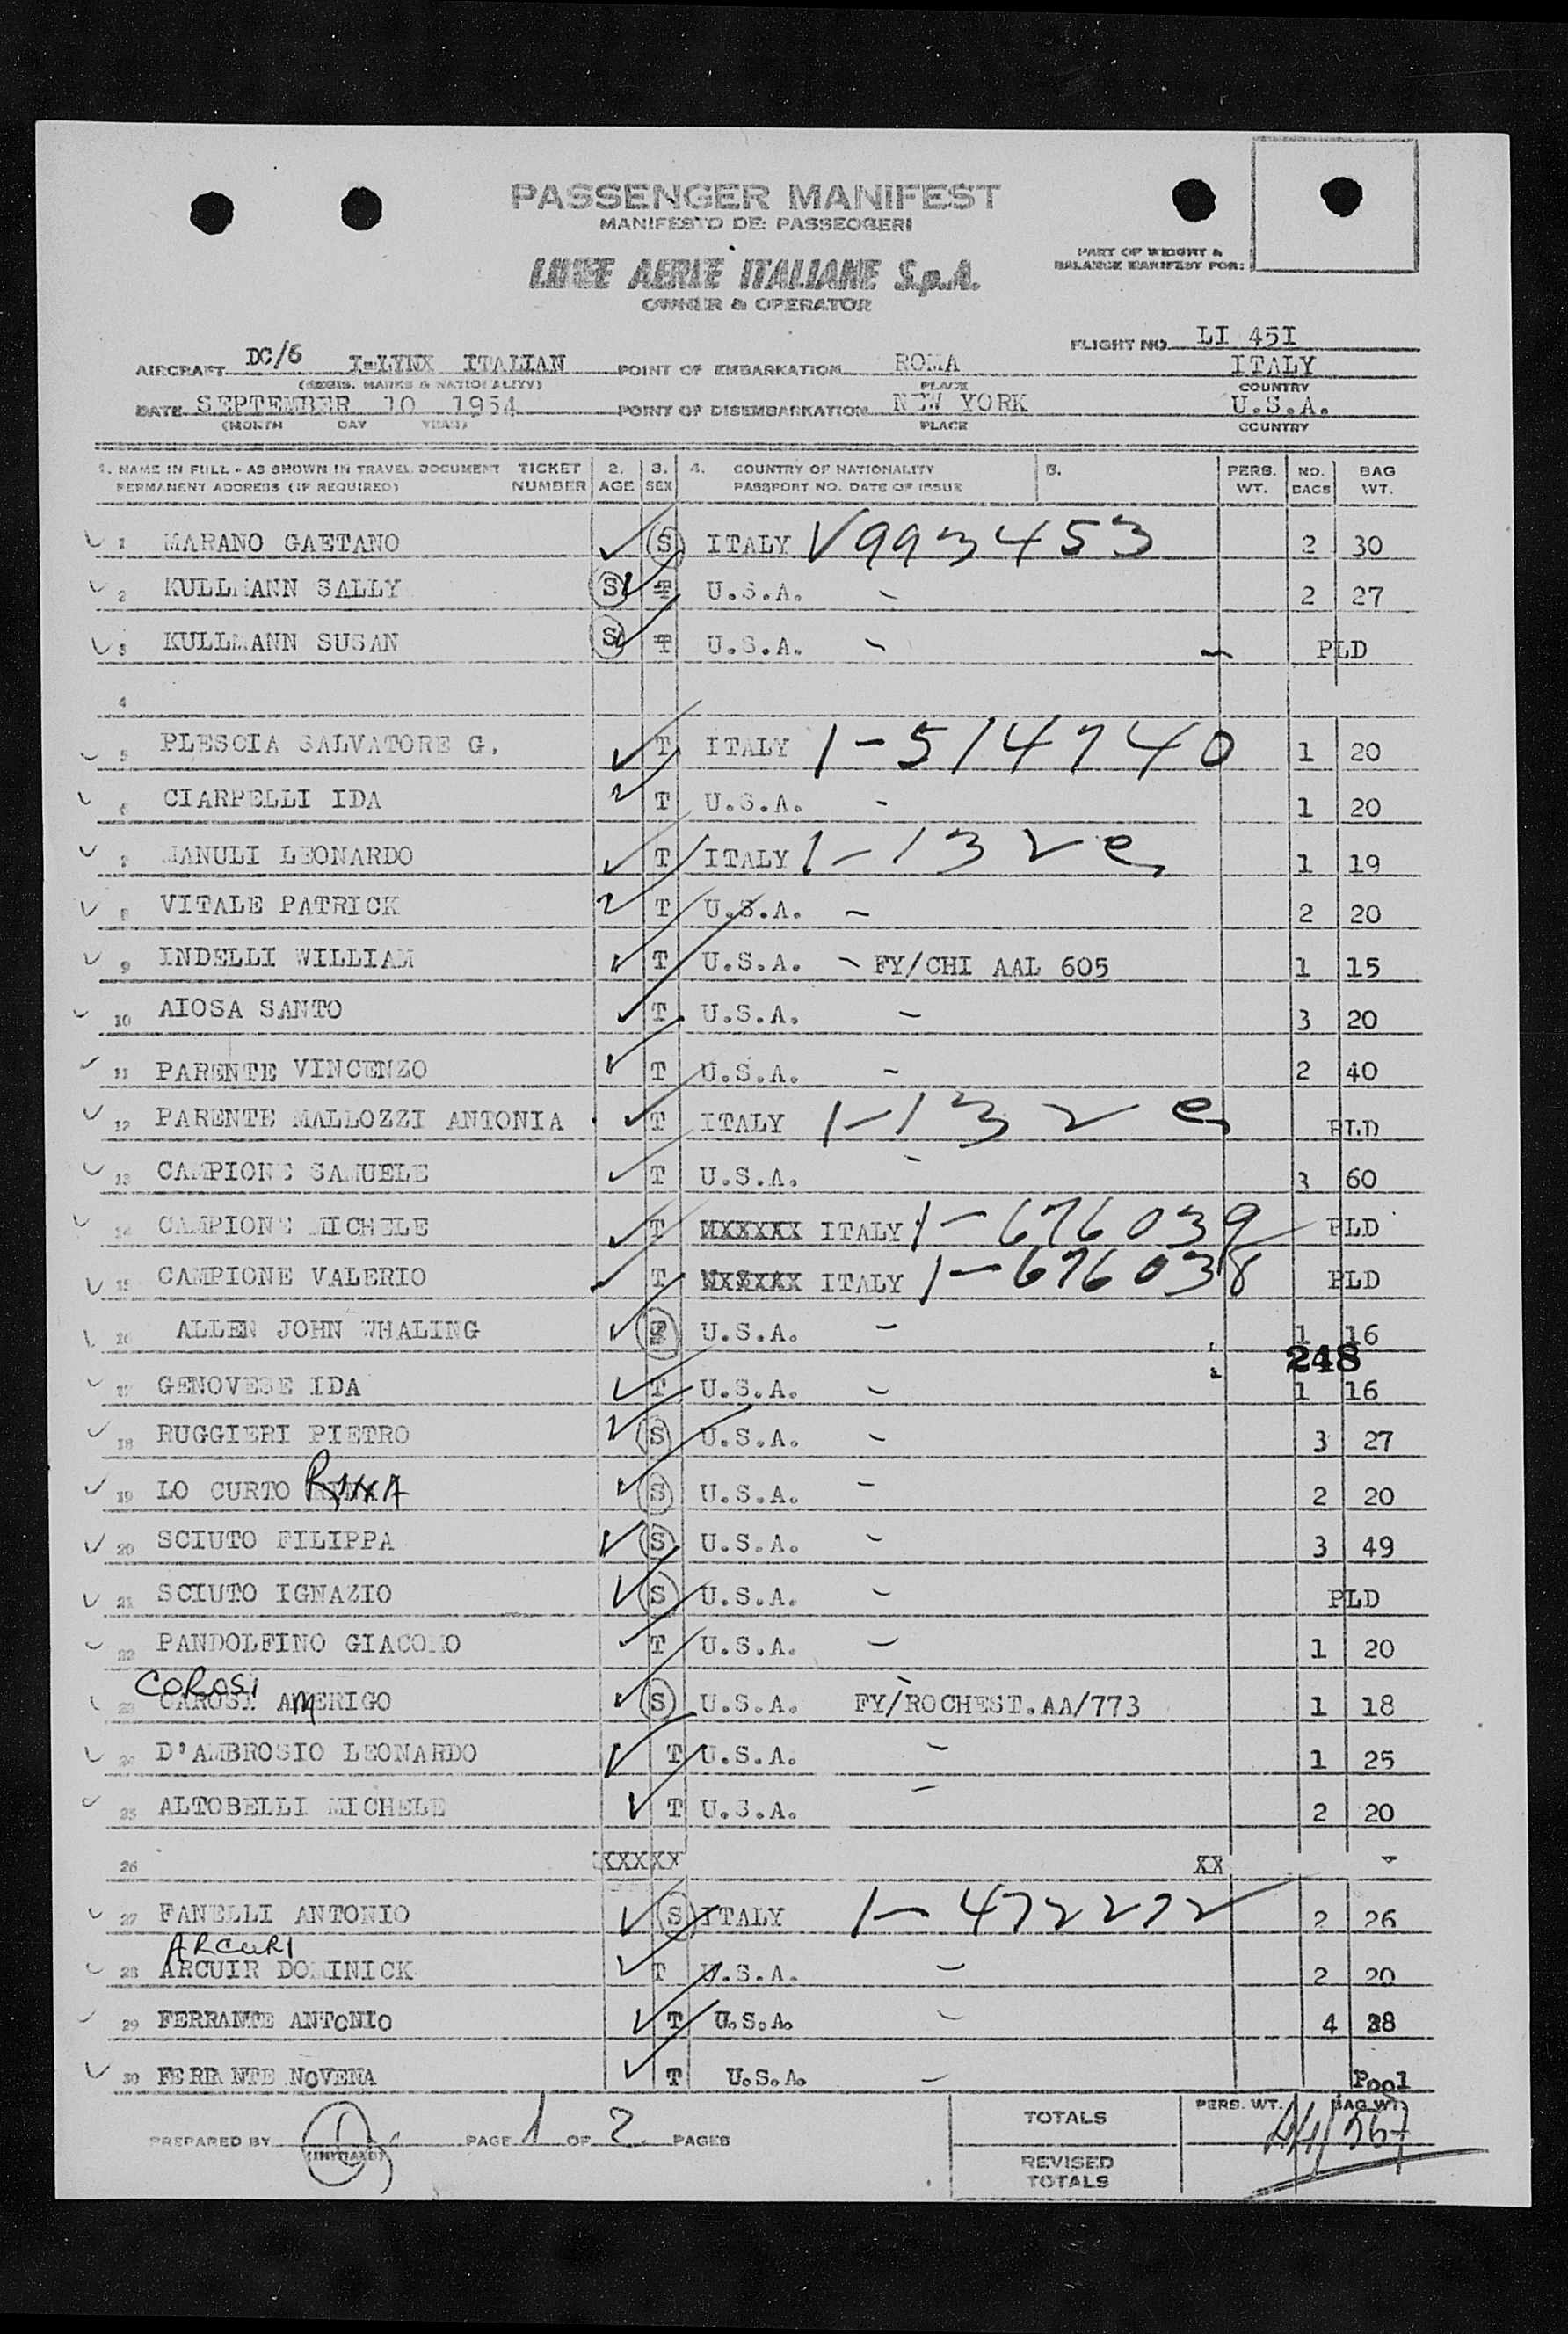 PASSENGER MANIFEST
MANIFESTO DEI PASSEGGERI
PART OF WEIGHT &
BALANCE MANIFEST FOR:
LINEE AEREE ITALIANE S.p.A.
OWNER & OPERATOR
FLIGHT NO. LI 451
AIRCRAFT DC/6 I-LYNX ITALIAN POINT OF EMBARKATION ROMA ITALY
(REGIS. MARKS & NATIONALITY) PLACE COUNTRY
DATE SEPTEMBER 10 1954 POINT OF DISEMBARKATION NEW YORK U.S.A.
(MONTH DAY YEAR) PLACE COUNTRY
1. NAME IN FULL - AS SHOWN IN TRAVEL DOCUMENT TICKET 2. 3. 4. COUNTRY OF NATIONALITY 5. PERS. NO. BAG
PERMANENT ADDRESS (IF REQUIRED) NUMBER AGE SEX PASSPORT NO. DATE OF ISSUE WT. BAGS WT.
1 MARANO GAETANO S ITALY V993453 2 30
2 KULLMANN SALLY S T U.S.A. - 2 27
3 KULLMANN SUSAN S T U.S.A. - PLD
4
5 PLESCIA SALVATORE G. T ITALY 1-514740 1 20
6 CIARPELLI IDA T U.S.A. - 1 20
7 MANULI LEONARDO T ITALY 1-132e 1 19
8 VITALE PATRICK T U.S.A. - 2 20
9 INDELLI WILLIAM T U.S.A. - FY/CHI AAL 605 1 15
10 AIOSA SANTO T U.S.A. - 3 20
11 PARENTE VINCENZO T U.S.A. - 2 40
12 PARENTE MALLOZZI ANTONIA . T ITALY 1-132e PLD
13 CAMPIONE SAMUELE T U.S.A. - 3 60
14 CAMPIONE MICHELE T XXXXXX ITALY 1-676039 PLD
15 CAMPIONE VALERIO T XXXXXX ITALY 1-676038 PLD
16 ALLEN JOHN WHALING U.S.A. - 1 16
248
17 GENOVESE IDA T U.S.A. - 1 16
18 RUGGIERI PIETRO S U.S.A. - 3 27
19 LO CURTO S U.S.A. - 2 20
20 SCIUTO FILIPPA S U.S.A. - 3 49
21 SCIUTO IGNAZIO S U.S.A. - PLD
22 PANDOLFINO GIACOMO T U.S.A. - 1 20
COROSI
23 CAROSI AMERIGO S U.S.A. FY/ROCHEST.AA/773 1 18
24 D'AMBROSIO LEONARDO T U.S.A. - 1 25
25 ALTOBELLI MICHELE T U.S.A. - 2 20
26 XXXXX XX
27 FANELLI ANTONIO S ITALY 1-472272 2 26
ARCURI
28 ARCUIR DOMINICK T U.S.A. - 2 20
29 FERRANTE ANTONIO T U.S.A. - 4 38
30 FERRANTE NOVENA T U.S.A. - Pool
PREPARED BY (INITIALS) PAGE 1 OF 2 PAGES TOTALS PERS. WT. BAG WT.
44/567
REVISED
TOTALS